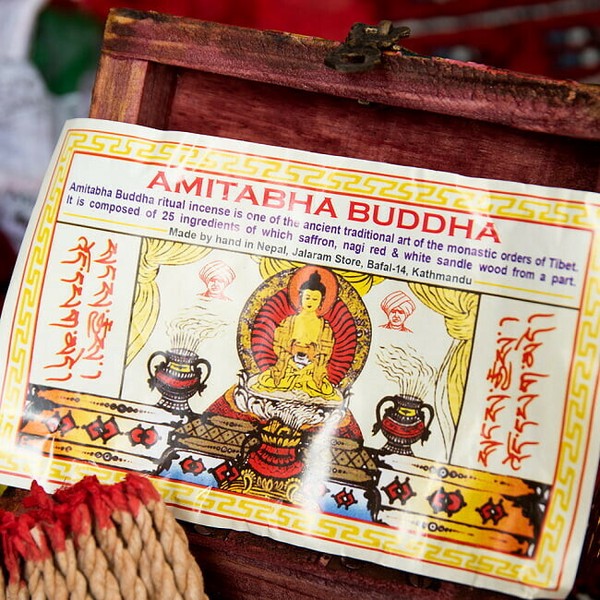 AMITABHA BUDDHA
Amitabha Buddha ritual incense is one of the ancient traditional art of the monastic orders of Tibet.
It is composed of 25 ingredients of which saffron, nagi red & white sandle wood from a part.
Made by hand in Nepal, Jalaram Store, Bafal-14, Kathmandu